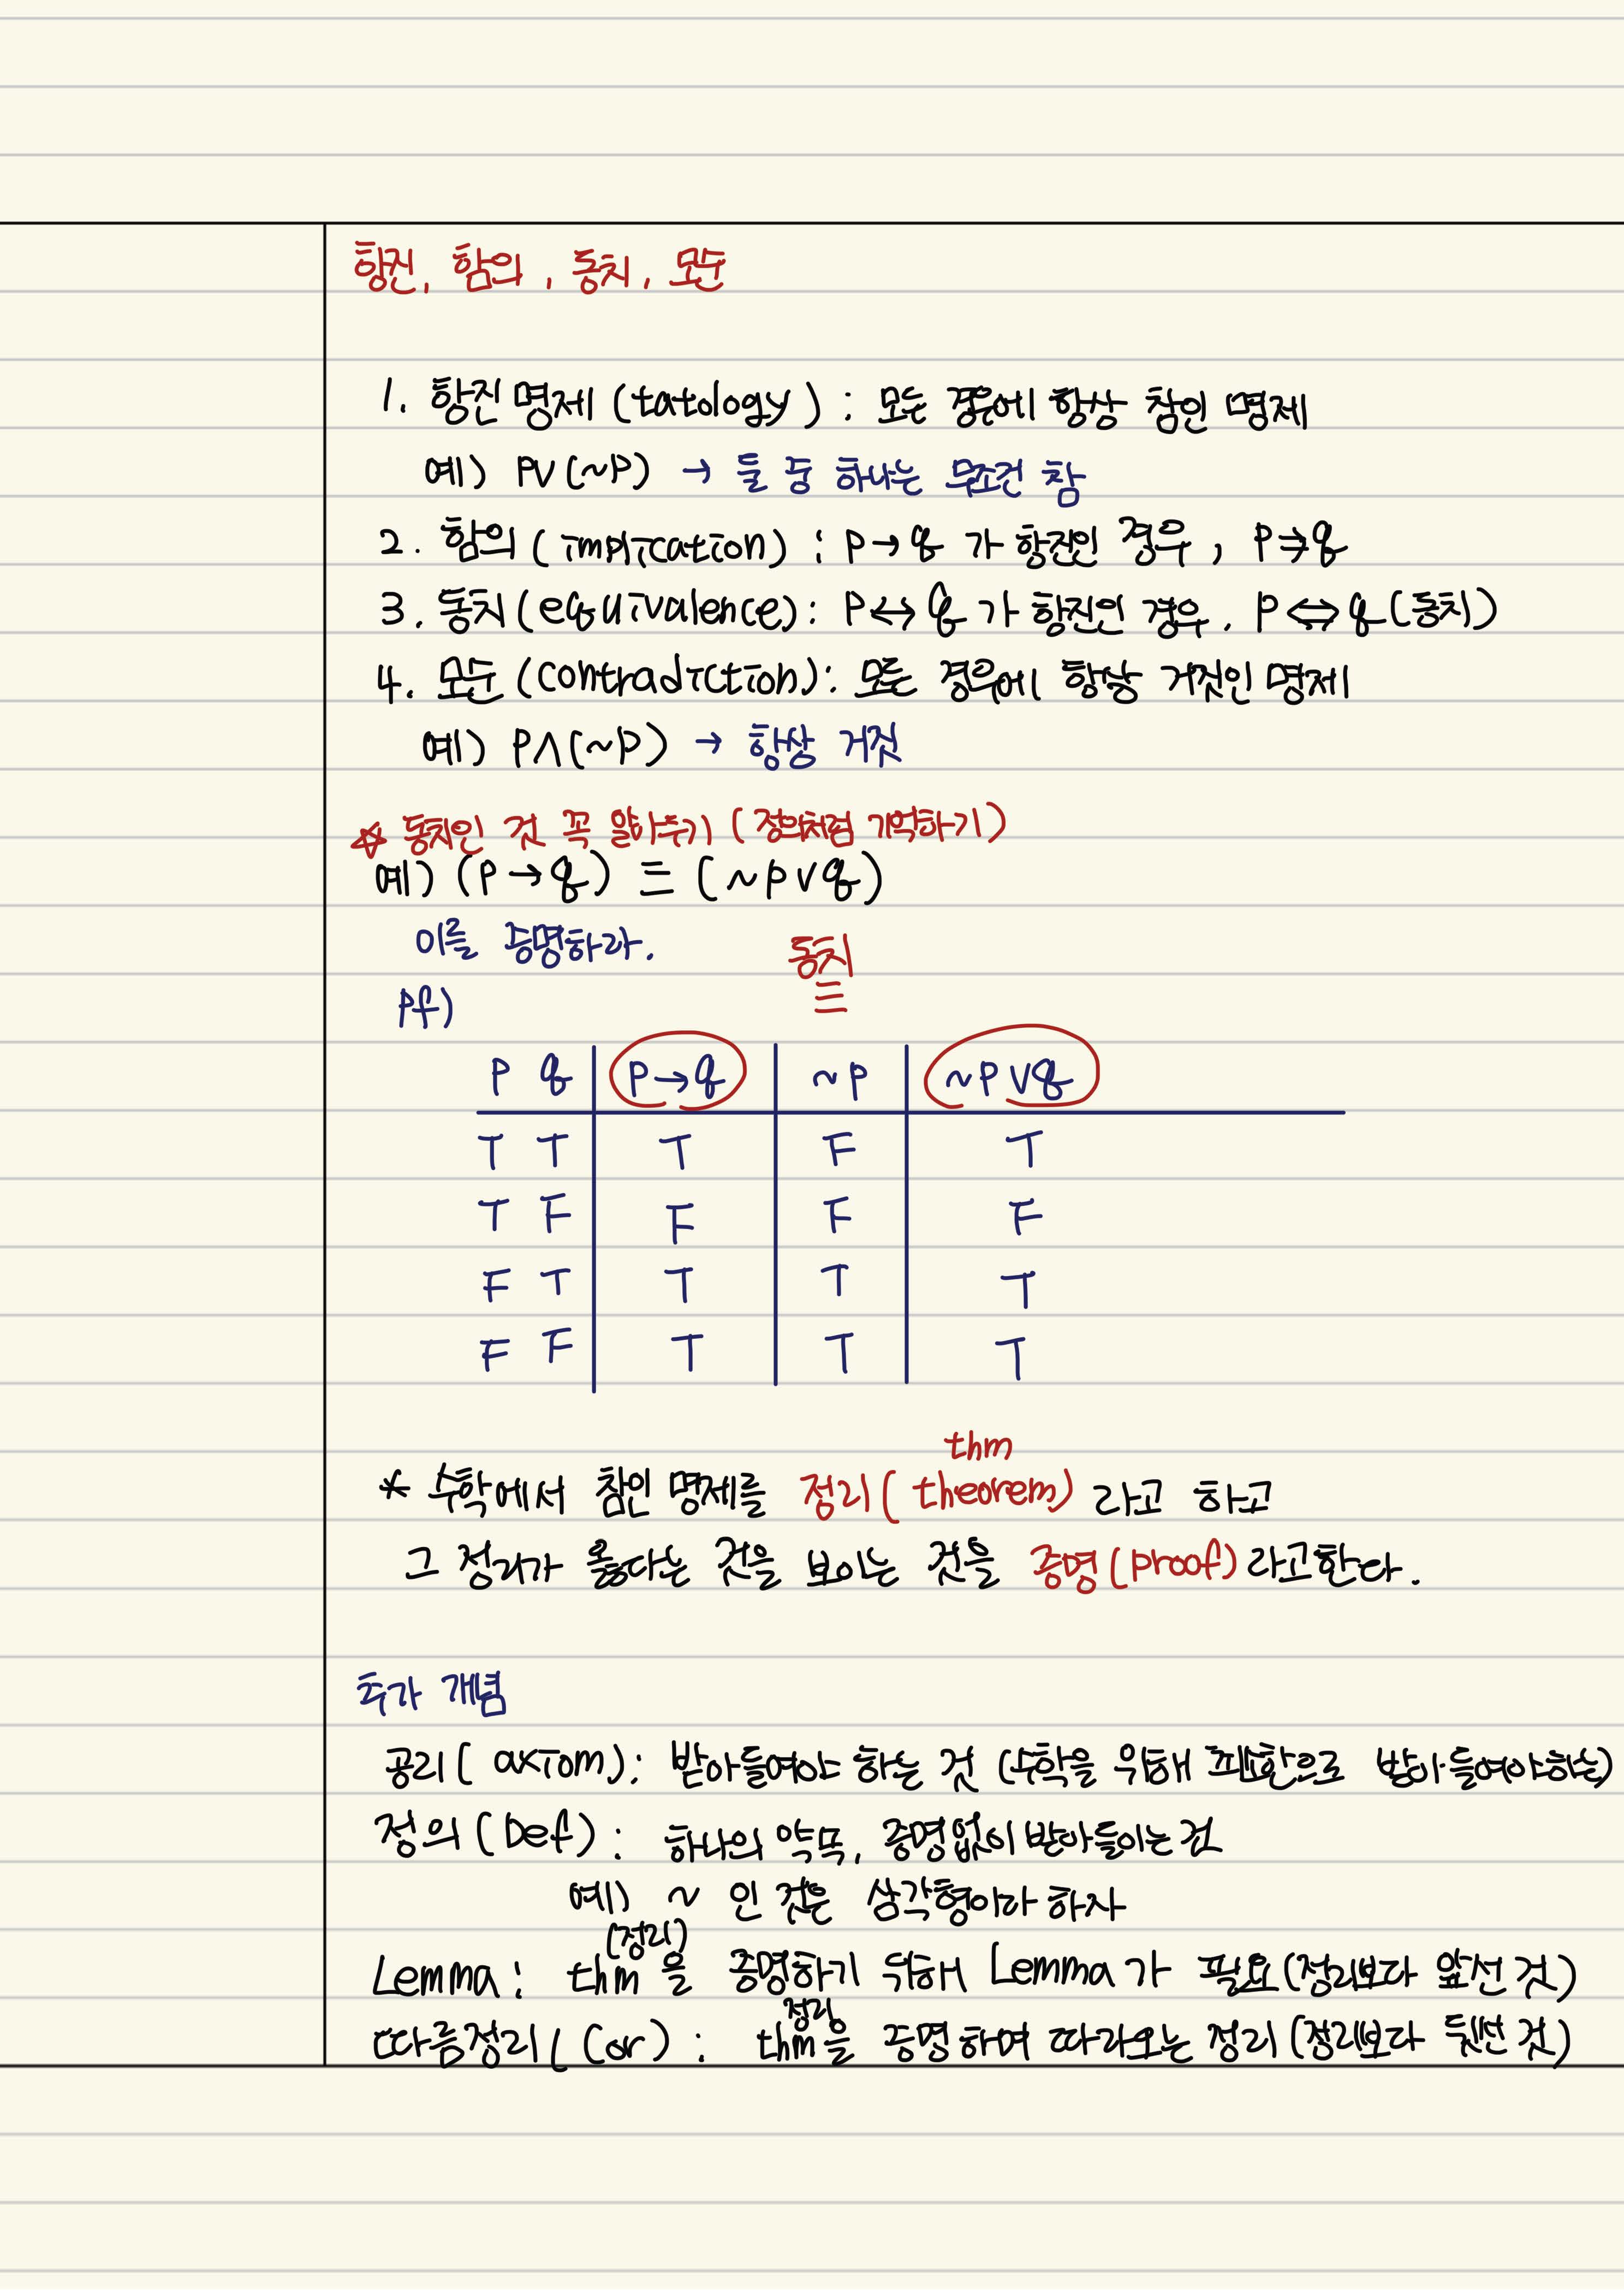 항진, 함의, 동치, 모순
1. 항진 명제 (tatology) : 모든 경우에 항상 참인 명제
예) P∨(~P) → 둘 중 하나는 무조건 참
2. 함의 (implication) : P→q 가 항진인 경우, P⇒q
3. 동치 (equivalence) : P↔q 가 항진인 경우. P⇔q (동치)
4. 모순 (contradiction) : 모든 경우에 항상 거짓인 명제
예) P∧(~P) → 항상 거짓
☆ 동치인 것 꼭 알아두기 (정의처럼 기억하기)
예) (P→q) ≡ (~P∨q)
이를 증명하라.
동치
≡
Pf)
P q P→q ~P ~P∨q
T T T F T
T F F F F
F T T T T
F F T T T
thm
* 수학에서 참인 명제를 정리(theorem) 라고 하고
그 정리가 옳다는 것을 보이는 것을 증명(Proof) 라고한다.
추가 개념
공리(axiom): 받아들여야 하는 것 (수학을 위해 필요함으로 받아들여야하는)
정의(Def) : 하나의 약속, 증명없이 받아들이는 것
예) ~ 인 것을 삼각형이라 하자
(정리)
Lemma : thm을 증명하기 위해 Lemma가 필요 (정리보다 앞선 것)
정리
따름정리(Cor) : thm을 증명하며 따라오는 정리 (정리보다 뒷선 것)